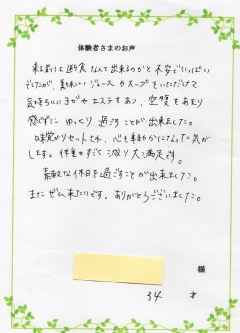 体験者さまのお声
来る前は断食なんて出来るのかと不安でいっぱい
でしたが、美味しいジュースやスープをいただけて
気持ちいいヨガやエステもあり、空腹をあまり
感じずにゆっくり過ごすことが出来ました。
味覚がリセットされ、心も穏やかになった気が
します。体重もすごく減り大満足です。
素敵な休日を過ごすことが出来ました。
またぜひ来たいです。ありがとうございました。
様
34 才